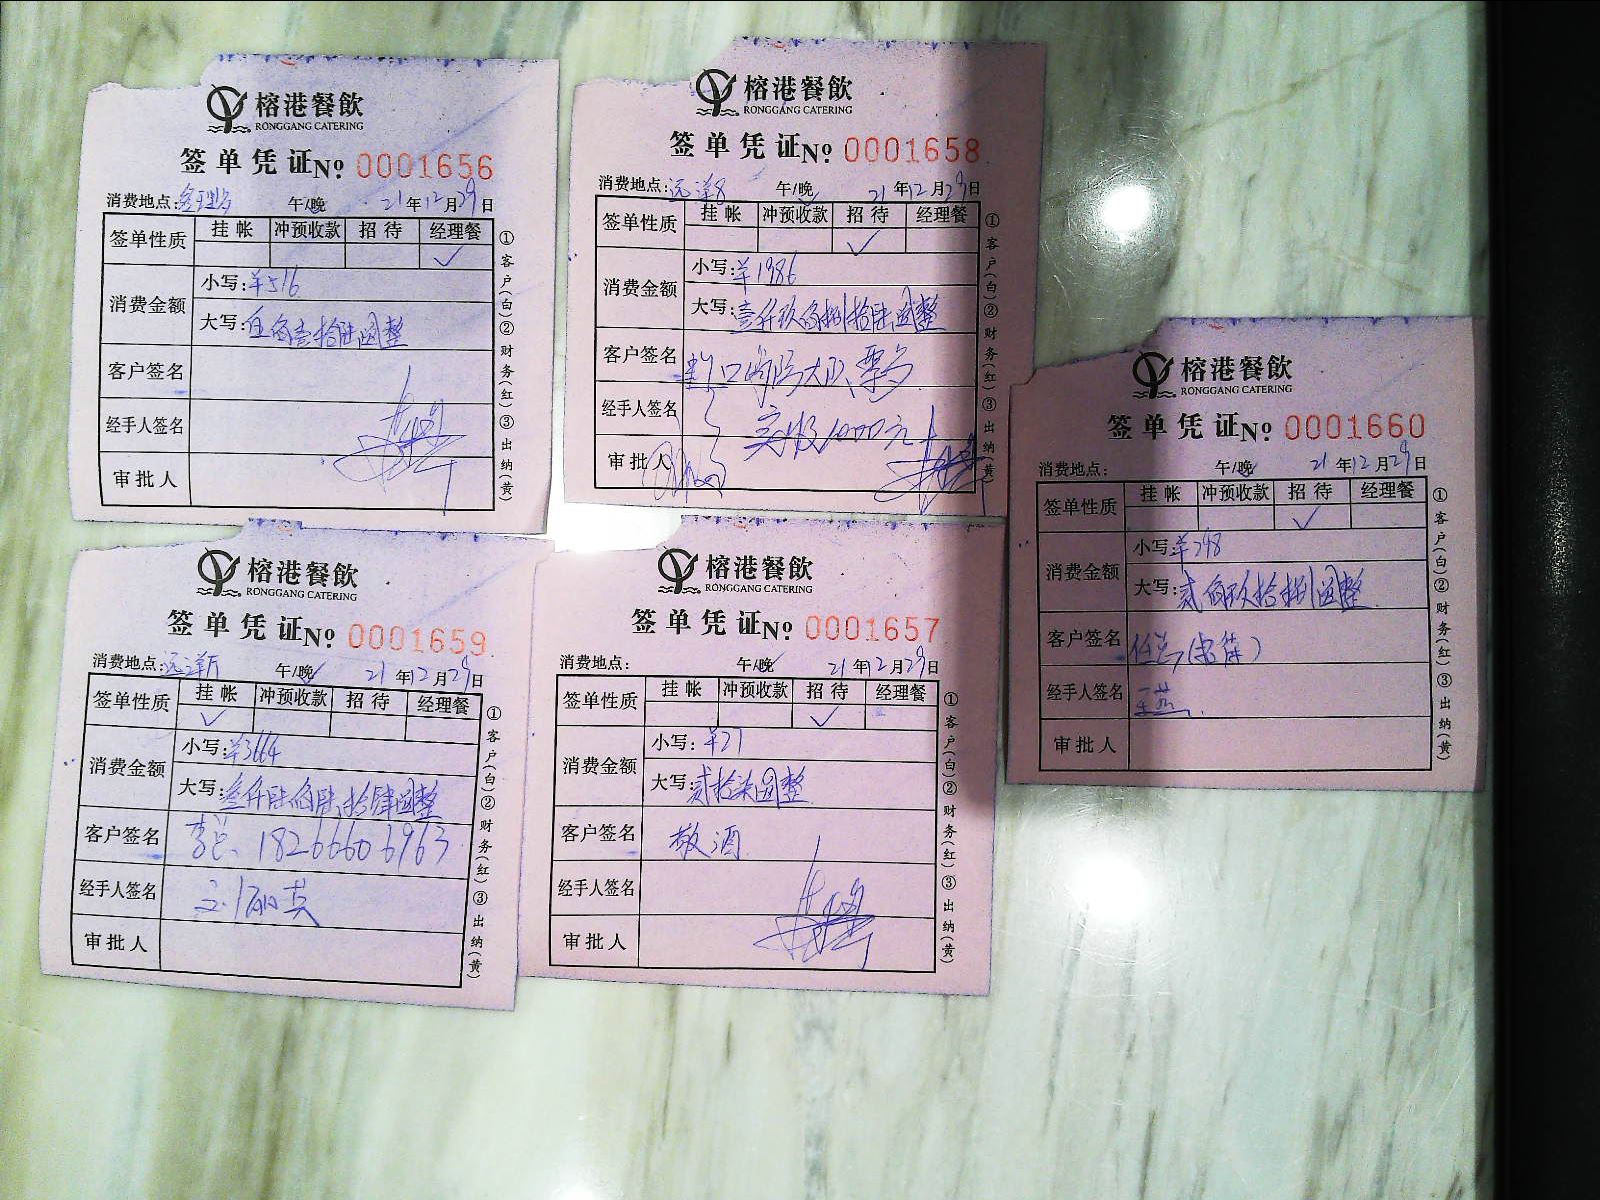 榕港餐飲
RONGGANG CATERING
签单凭证 No 0001656
消费地点: 午/晚 21年12月29日
签单性质 挂帐 冲预收款 招待 经理餐
✓
消费金额 小写:¥516
大写:伍佰壹拾陆圆整
客户签名
经手人签名
审批人
①客户(白)②财务(红)③出纳(黄)
榕港餐飲
RONGGANG CATERING
签单凭证 No 0001658
消费地点:远洋8 午/晚 21年12月29日
签单性质 挂帐 冲预收款 招待 经理餐
✓
消费金额 小写:¥1986
大写:壹仟玖佰捌拾陆圆整
客户签名
经手人签名 实收1000元
审批人
①客户(白)②财务(红)③出纳(黄)
榕港餐飲
RONGGANG CATERING
签单凭证 No 0001660
消费地点: 午/晚 21年12月29日
签单性质 挂帐 冲预收款 招待 经理餐
✓
消费金额 小写:¥298
大写:贰佰玖拾捌圆整
客户签名 任总
经手人签名 王燕
审批人
①客户(白)②财务(红)③出纳(黄)
榕港餐飲
RONGGANG CATERING
签单凭证 No 0001659
消费地点:远洋厅 午/晚 21年12月29日
签单性质 挂帐 冲预收款 招待 经理餐
✓
消费金额 小写:¥3664
大写:叁仟陆佰陆拾肆圆整
客户签名 李总 18266606963
经手人签名
审批人
①客户(白)②财务(红)③出纳(黄)
榕港餐飲
RONGGANG CATERING
签单凭证 No 0001657
消费地点: 午/晚 21年12月29日
签单性质 挂帐 冲预收款 招待 经理餐
✓
消费金额 小写:¥27
大写:贰拾柒圆整
客户签名 敬酒
经手人签名
审批人
①客户(白)②财务(红)③出纳(黄)